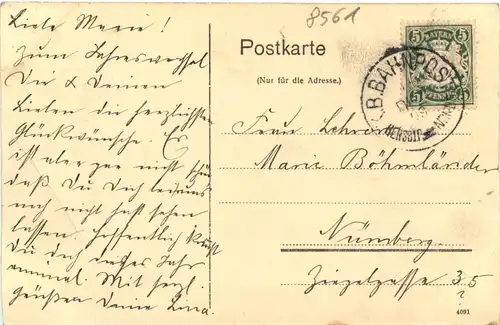 Liebe Marie!
Zum Jahreswechsel
Dir & Deinen
Lieben die herzlichsten
Glückwünsche. Es
ist aber gar nicht schön
daß Du Dich bei uns
noch nicht hast sehen
lassen. Hoffentlich kommst
Du doch dieses Jahr
einmal. Mit herzl.
Grüßen Deine Lina.
8561
Postkarte
(Nur für die Adresse.)
BAYERN
5 5
K.B.BAHNPOST
HERSBR
Frau Lehrer
Marie Böhmländer
Nürnberg.
Ziegelgasse 35
?
4091